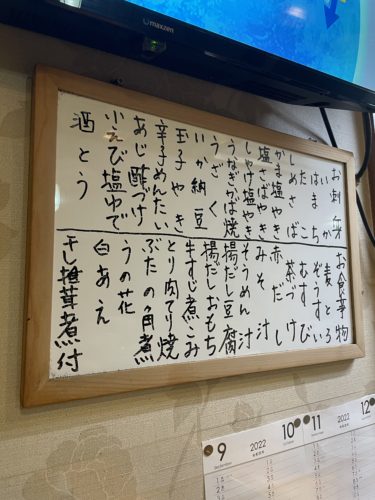 maxzen
お刺身
いか
はまち
たこ
しめさば
かま塩やき
塩さばやき
しゃけ塩やき
うなぎかば焼
うざく
いか納豆
玉子やき
辛子めんたい
あじ酢づけ
小えび塩ゆで
酒とう
お食事物
麦とろ
ぞうすい
むすび
茶づけ
赤だし
みそ汁
そうめん汁
揚だし豆腐
揚だしおもち
牛すじ煮こみ
とり肉てり焼
ぶたの角煮
うの花
白あえ
干し椎茸煮付
9 2022 10
11 2022 12